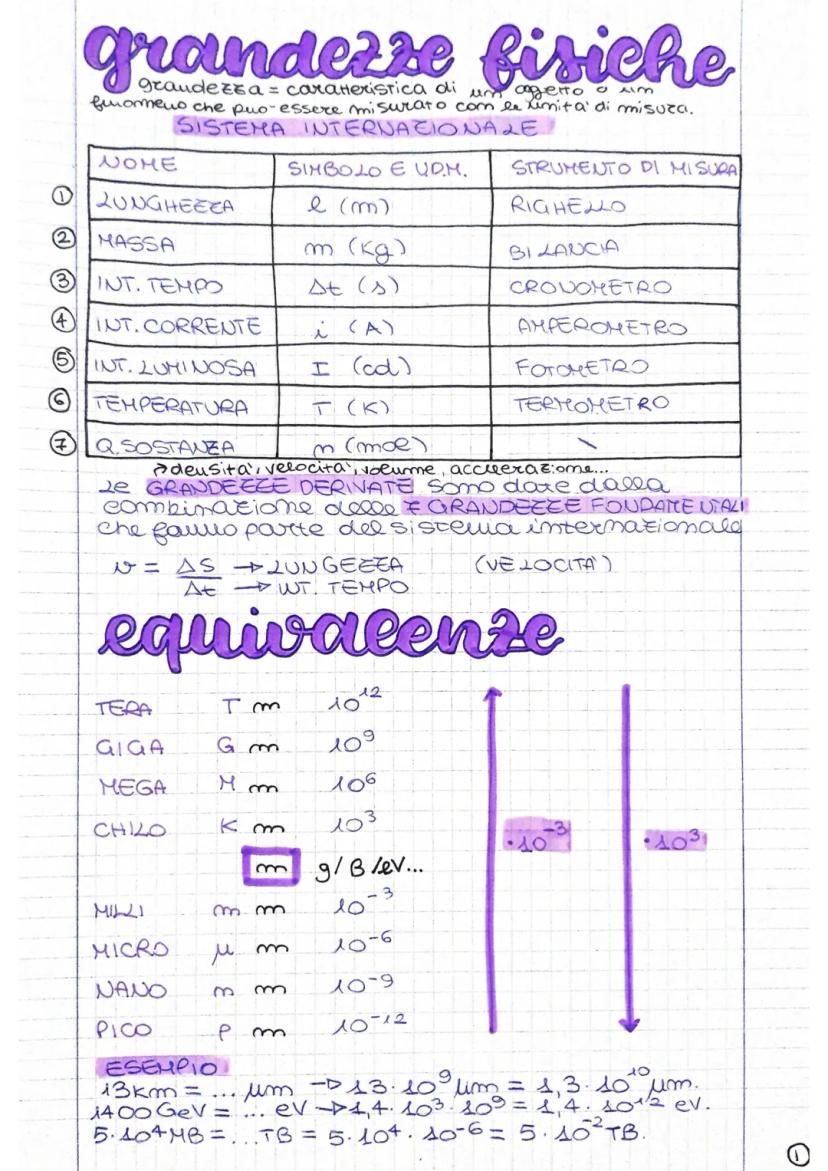 grandezze fisiche
grandezza = caratteristica di un oggetto o un
fenomeno che può essere misurato con le unità di misura.
SISTEMA INTERNAZIONALE
NOME SIMBOLO E U.D.M. STRUMENTO DI MISURA
① LUNGHEZZA l (m) RIGHELLO
② MASSA m (Kg) BILANCIA
③ INT. TEMPO Δt (s) CRONOMETRO
④ INT. CORRENTE i (A) AMPEROMETRO
⑤ INT. LUMINOSA I (cd) FOTOMETRO
⑥ TEMPERATURA T (K) TERMOMETRO
⑦ Q. SOSTANZA n (mol) \
↗ densità, velocità, volume, accelerazione...
Le GRANDEZZE DERIVATE sono date dalla
combinazione delle 7 GRANDEZZE FONDAMENTALI
che fanno parte del sistema internazionale
v = ΔS → LUNGEZZA (VELOCITA')
Δt → INT. TEMPO
equivalenze
TERA T m 10¹²
GIGA G m 10⁹
MEGA M m 10⁶
CHILO K m 10³
·10⁻³ ·10³
m g/B/eV...
MILLI m m 10⁻³
MICRO μ m 10⁻⁶
NANO n m 10⁻⁹
PICO p m 10⁻¹²
ESEMPIO
13km = ... μm → 13·10⁹ μm = 1,3·10¹⁰ μm.
1400 GeV = ... eV → 1,4·10³·10⁹ = 1,4·10¹² eV.
5·10⁴ MB = ... TB = 5·10⁴·10⁻⁶ = 5·10⁻² TB.
①